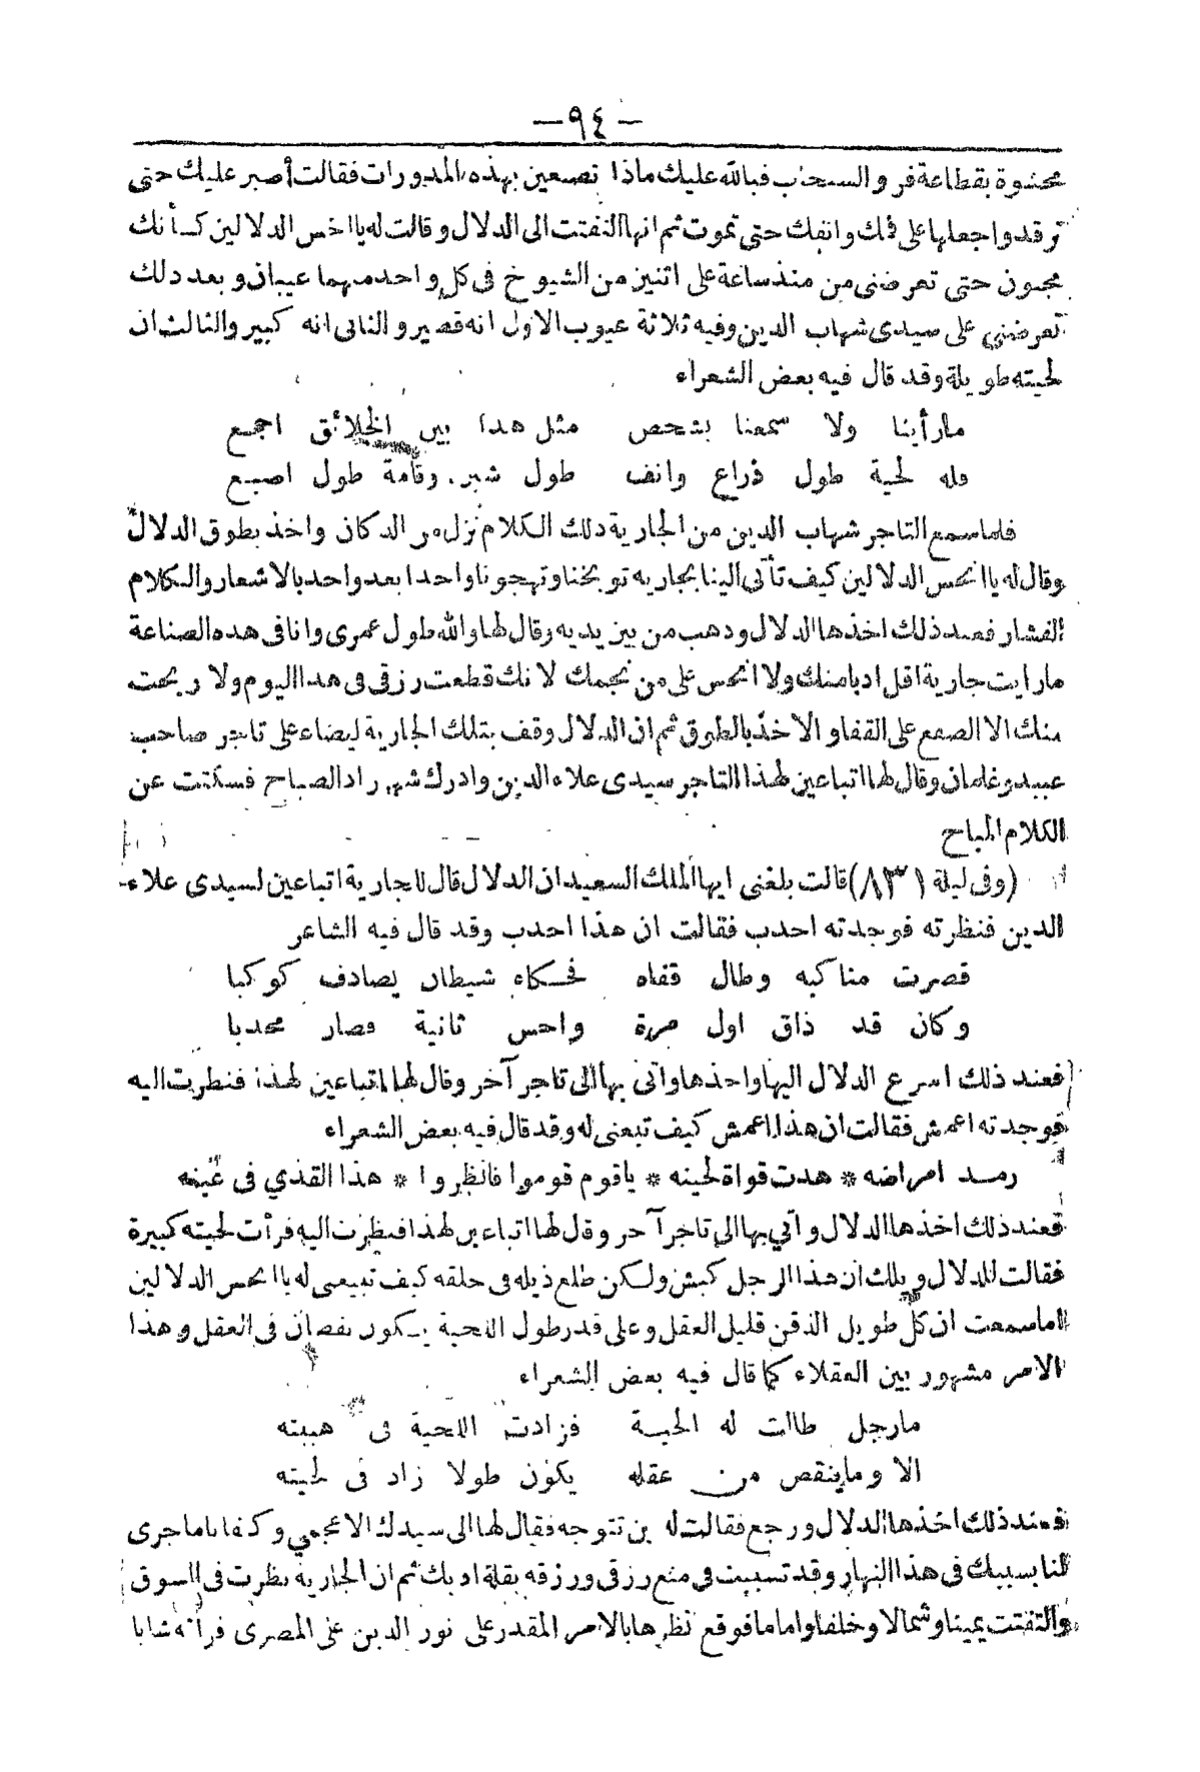 — ٩٤ —
محشوة بقطاعة فرو السنجاب فبالله عليك ماذا تصنعين بهذه المدورات فقالت أصبر عليك حتى
ترقد واجعلها على فمك وانفك حتى تموت ثم انها التفتت الى الدلال وقالت له يا اخس الدلالين كأنك
مجنون حتى تعرضنى من منذ ساعة على اثنين من الشيوخ فى كل واحد منهما عيبان وبعد ذلك
تعرضنى على سيدى شهاب الدين وفيه ثلاثة عيوب الاول انه قصير والثانى انه كبير والثالث ان
لحيته طويلة وقد قال فيه بعض الشعراء
مارأينا ولا سمعنا بشخص مثل هذا بين الخلائق اجمع
فله لحية طول ذراع وانف طول شبر وقامة طول اصبع
فلما سمع التاجر شهاب الدين من الجارية ذلك الكلام نزل من الدكان واخذ بطوق الدلال
وقال له يا انحس الدلالين كيف تأتى الينا بجارية توبخنا وتهجونا واحدا بعد واحد بالاشعار والكلام
الفشار فعند ذلك اخذها الدلال وذهب من بين يديه وقال لها والله طول عمرى وانا فى هذه الصناعة
ما رايت جارية اقل ادبا منك ولا انحس على من نجمك لانك قطعت رزقى فى هذا اليوم ولا ربحت
منك الا الصفع على القفا والاخذ بالطوق ثم ان الدلال وقف بتلك الجارية ايضا على تاجر صاحب
عبيد وغلمان وقال لها اتباعين لهذا التاجر سيدى علاء الدين وادرك شهر زاد الصباح فسكتت عن
الكلام المباح
(وفى ليلة ٨٣١) قالت بلغنى ايها الملك السعيد ان الدلال قال للجارية اتباعين لسيدى علاء
الدين فنظرته فوجدته احدب فقالت ان هذا احدب وقد قال فيه الشاعر
قصرت مناكبه وطال قفاه فحكاه شيطان يصادف كوكبا
وكان قد ذاق اول مرة واحس ثانية فصار محدبا
فعند ذلك اسرع الدلال اليها واخذها واتى بها الى تاجر آخر وقال لها اتباعين لهذا فنظرت اليه
فوجدته اعمش فقالت ان هذا اعمش كيف تبعنى له وقد قال فيه بعض الشعراء
رمد امراضه * هدت قواة لحينه * ياقوم قوموا فانظروا * هذا القذي فى عينه
فعند ذلك اخذها الدلال واتي بها الى تاجر آخر وقال لها اتباعين لهذا فنظرت اليه فرأت لحيته كبيرة
فقالت للدلال ويلك ان هذا الرجل كبش ولكن طلع ذيله فى حلقه كيف تبيعنى له يا انحس الدلالين
اما سمعت ان كل طويل الذقن قليل العقل وعلى قدر طول اللحية يكون نقصان فى العقل وهذا
الامر مشهور بين العقلاء كما قال فيه بعض الشعراء
مارجل طالت له الحية فزادت اللحية فى هيبته
الا وما ينقص من عقله يكون طولا زاد فى لحيته
فعند ذلك اخذها الدلال ورجع فقالت له ين تتوجه فقال لها الى سيدك الاعجمي وكفانا ما جرى
لنا بسببك فى هذا النهار وقد تسببت في منع رزقى ورزقه بقلة ادبك ثم ان الجارية نظرت فى السوق
والتفتت يمينا وشمالا وخلفا واماما فوقع نظرها بالامر المقدر على نور الدين على المصرى فرأته شابا